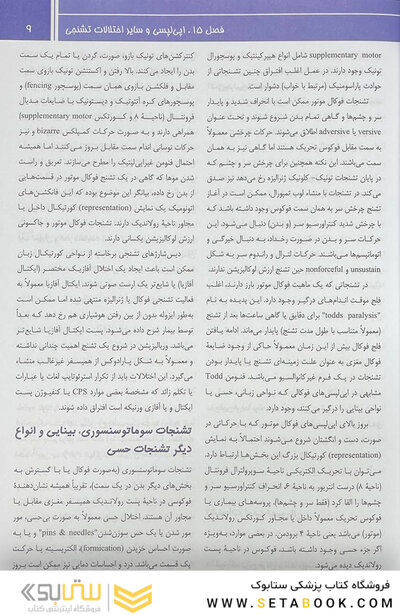 فصل ۱۵. اپی‌لپسی و سایر اختلالات تشنجی
۹
supplementary motor شامل انواع هیپرکینتیک و پوسچورال
تونیک وجود دارند. در عمل اغلب افتراق چنین تشنجاتی از
حوادث پاراسومنیک (مرتبط با خواب) دشوار است.
تشنجات فوکال موتور ممکن است با انحراف شدید و پایدار
سر و چشم‌ها و گاهی تمام بدن شروع شوند، و تحت عنوان
versive یا adversive اطلاق می‌شوند. حرکات چرخشی معمولاً
به سمت مقابل فوکوس تحریک هستند اما گاهی نیز به همان
سمت می‌باشند. این نکته همچنین برای چرخش سر و چشم که
در پایان تشنجات تونیک- کلونیک ژنرالیزه رخ می‌دهد نیز صدق
می‌کند. در تشنجات با منشاء لوب تمپورال، ممکن است در آغاز
تشنج چرخش سر به همان سمت فوکوس وجود داشته باشد که
با چرخش شدید کنتراورسیو سر (و بدن) دنبال می‌شود. این
حرکات سر و بدن در صورت رخداد، به دنبال خیرگی و
اتوماتیسم‌ها می‌باشند. حرکات لترال و راندوم سر به شکل
unsustain و nonforceful حین تشنج ارزش لوکالیزیشن ندارند.
در تشنجاتی که یک ماهیت فوکال موتور بارز دارند، اغلب
فلج موقت اندام‌های درگیر وجود دارد. این پدیده به نام
"todds paralysis" برای دقایق یا گاهی ساعت‌ها بعد از تشنج
(معمولاً متناسب با طول مدت تشنج) پایدار می‌ماند. ادامه یافتن
فلج فوکال بیش از این زمان معمولاً حاکی از وجود ضایعهٔ
فوکال مغزی به عنوان علت زمینه‌ای تشنج یا پایدار بودن
تشنجات در یک فرم غیرکانوالسیو می‌باشد. فنومن Todd
مشابهی در اپی‌لپسی‌های فوکالی که نواحی زبانی، حسی یا
نواحی بینایی را درگیر می‌کنند، وجود دارد.
بروز بالای اپی‌لپسی‌های فوکال موتور که با حرکاتی در
صورت، دست و انگشتان شروع می‌شوند احتمالاً به نمایش
(representation) کورتیکال بزرگ این بخش‌ها ارتباط دارد.
می‌توان با تحریک الکتریکی ناحیهٔ سوپرولترال فرونتال
(ناحیهٔ ۸) درست انتریور به ناحیهٔ ۶، انحراف کنتراورسیو سر و
چشم‌ها را القا کرد (فقط سر و چشم‌ها). پروسه‌های بیماری یا
فوکوس تحریک معمولاً داخل یا مجاور کورتکس رولاندیک
(موتور) می‌باشد یعنی ناحیهٔ ۴ برودمن. در بعضی موارد، به‌ویژه
اگر جزء حسی وجود داشته باشد، فوکوس در ناحیهٔ پست
رولاندیک دیده می‌شود.
کنترکشن‌های تونیک بازو، صورت، گردن یا تمام یک سمت
بدن را ایجاد می‌کنند. بالا رفتن و اکستنشن تونیک بازوی سمت
مقابل و فلکشن بازوی همان سمت (پوسچور fencing) و
پوسچورهای کره آتتوتیک و دیستونیک با ضایعات مدیال
فرونتال (ناحیهٔ ۸ و کورتکس supplementary motor)
همراهی دارند و به صورت حرکات کمپلکس bizarre و نیز
حرکات نوسانی اندام سمت مقابل بروز می‌کنند اما همیشه
احتمال فنومن غیراپی‌لپتیک را مطرح می‌سازند. تعریق و راست
شدن موها که گاهی در یک تشنج فوکال موتور در قسمت‌هایی
از بدن رخ داده، بیانگر این موضوع بوده که این فانکشن‌های
اتونومیک یک نمایش (representation) کورتیکال داخل یا
مجاور ناحیهٔ رولاندیک دارند. تشنجات فوکال موتور و جاکسونی
ارزش لوکالیزیشن یکسانی دارند.
دیس‌شارژهای تشنجی برخاسته از نواحی کورتیکال زبان
ممکن است باعث ایجاد یک اختلال آفازیک مختصر (ایکتال
آفازیا) یا شایع‌تر یک ارست صوتی شوند. ایکتال آفازیا معمولاً به
فعالیت تشنجی فوکال یا ژنرالیزه منتهی شده اما ممکن است
به‌طور ایزوله بدون از بین رفتن هوشیاری هم رخ دهد که بعداً
توسط بیمار شرح داده می‌شود. پست ایکتال آفازیا شایع‌تر
می‌باشد. وربالیزیشن در شروع یک تشنج اهمیت چندانی نداشته
و معمولاً به شکل پارادوکس از همیسفر غیرغالب منشاء
می‌گیرد. این اختلالات باید از تکرار استرئوتایپ لغات یا عبارات
یا تکلم زائد که مشخصهٔ بعضی موارد CPS یا کنفیوژن پست
ایکتال و یا آفازی ورنیکه است افتراق داده شوند.
تشنجات سوماتوسنسوری، بینایی و انواع
دیگر تشنجات حسی
تشنجات سوماتوسنسوری (به‌صورت فوکال یا با گسترش به
بخش‌های دیگر بدن در یک سمت)، تقریباً همیشه نشان‌دهندهٔ
فوکوس در ناحیهٔ پست رولاندیک همیسفر مغزی مقابل یا
مجاور آن هستند. اختلال حسی معمولاً به صورت بی‌حسی، مور
مور شدن یا یک حس سوزن‌شدن "pins & needles" و یا به
صورت احساس خزیدن (formication)، الکتریسیته یا حرکت
یک قسمت می‌باشد. درد و احساسات دمایی نیز ممکن است بروز
فروشگاه کتاب پزشکی ستابوک
WWW.SETABOOK.COM
ستابوک
فروشگاه اینترنتی کتاب